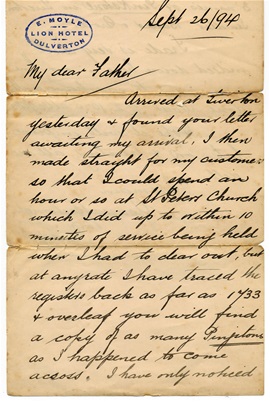 E. MOYLE
LION HOTEL
DULVERTON
Sept 26/94
My dear Father
Arrived at Tiverton
yesterday & found your letter
awaiting my arrival. I then
made straight for my custome
so that I could spend an
hour or so at St Peters Church
which I did up to within 10
minutes of service being held
when I had to clear out, but
at anyrate I have traced the
registers back as far as 1733
& overleaf you will find
a copy of as many
as I happened to come
across. I have only noticed